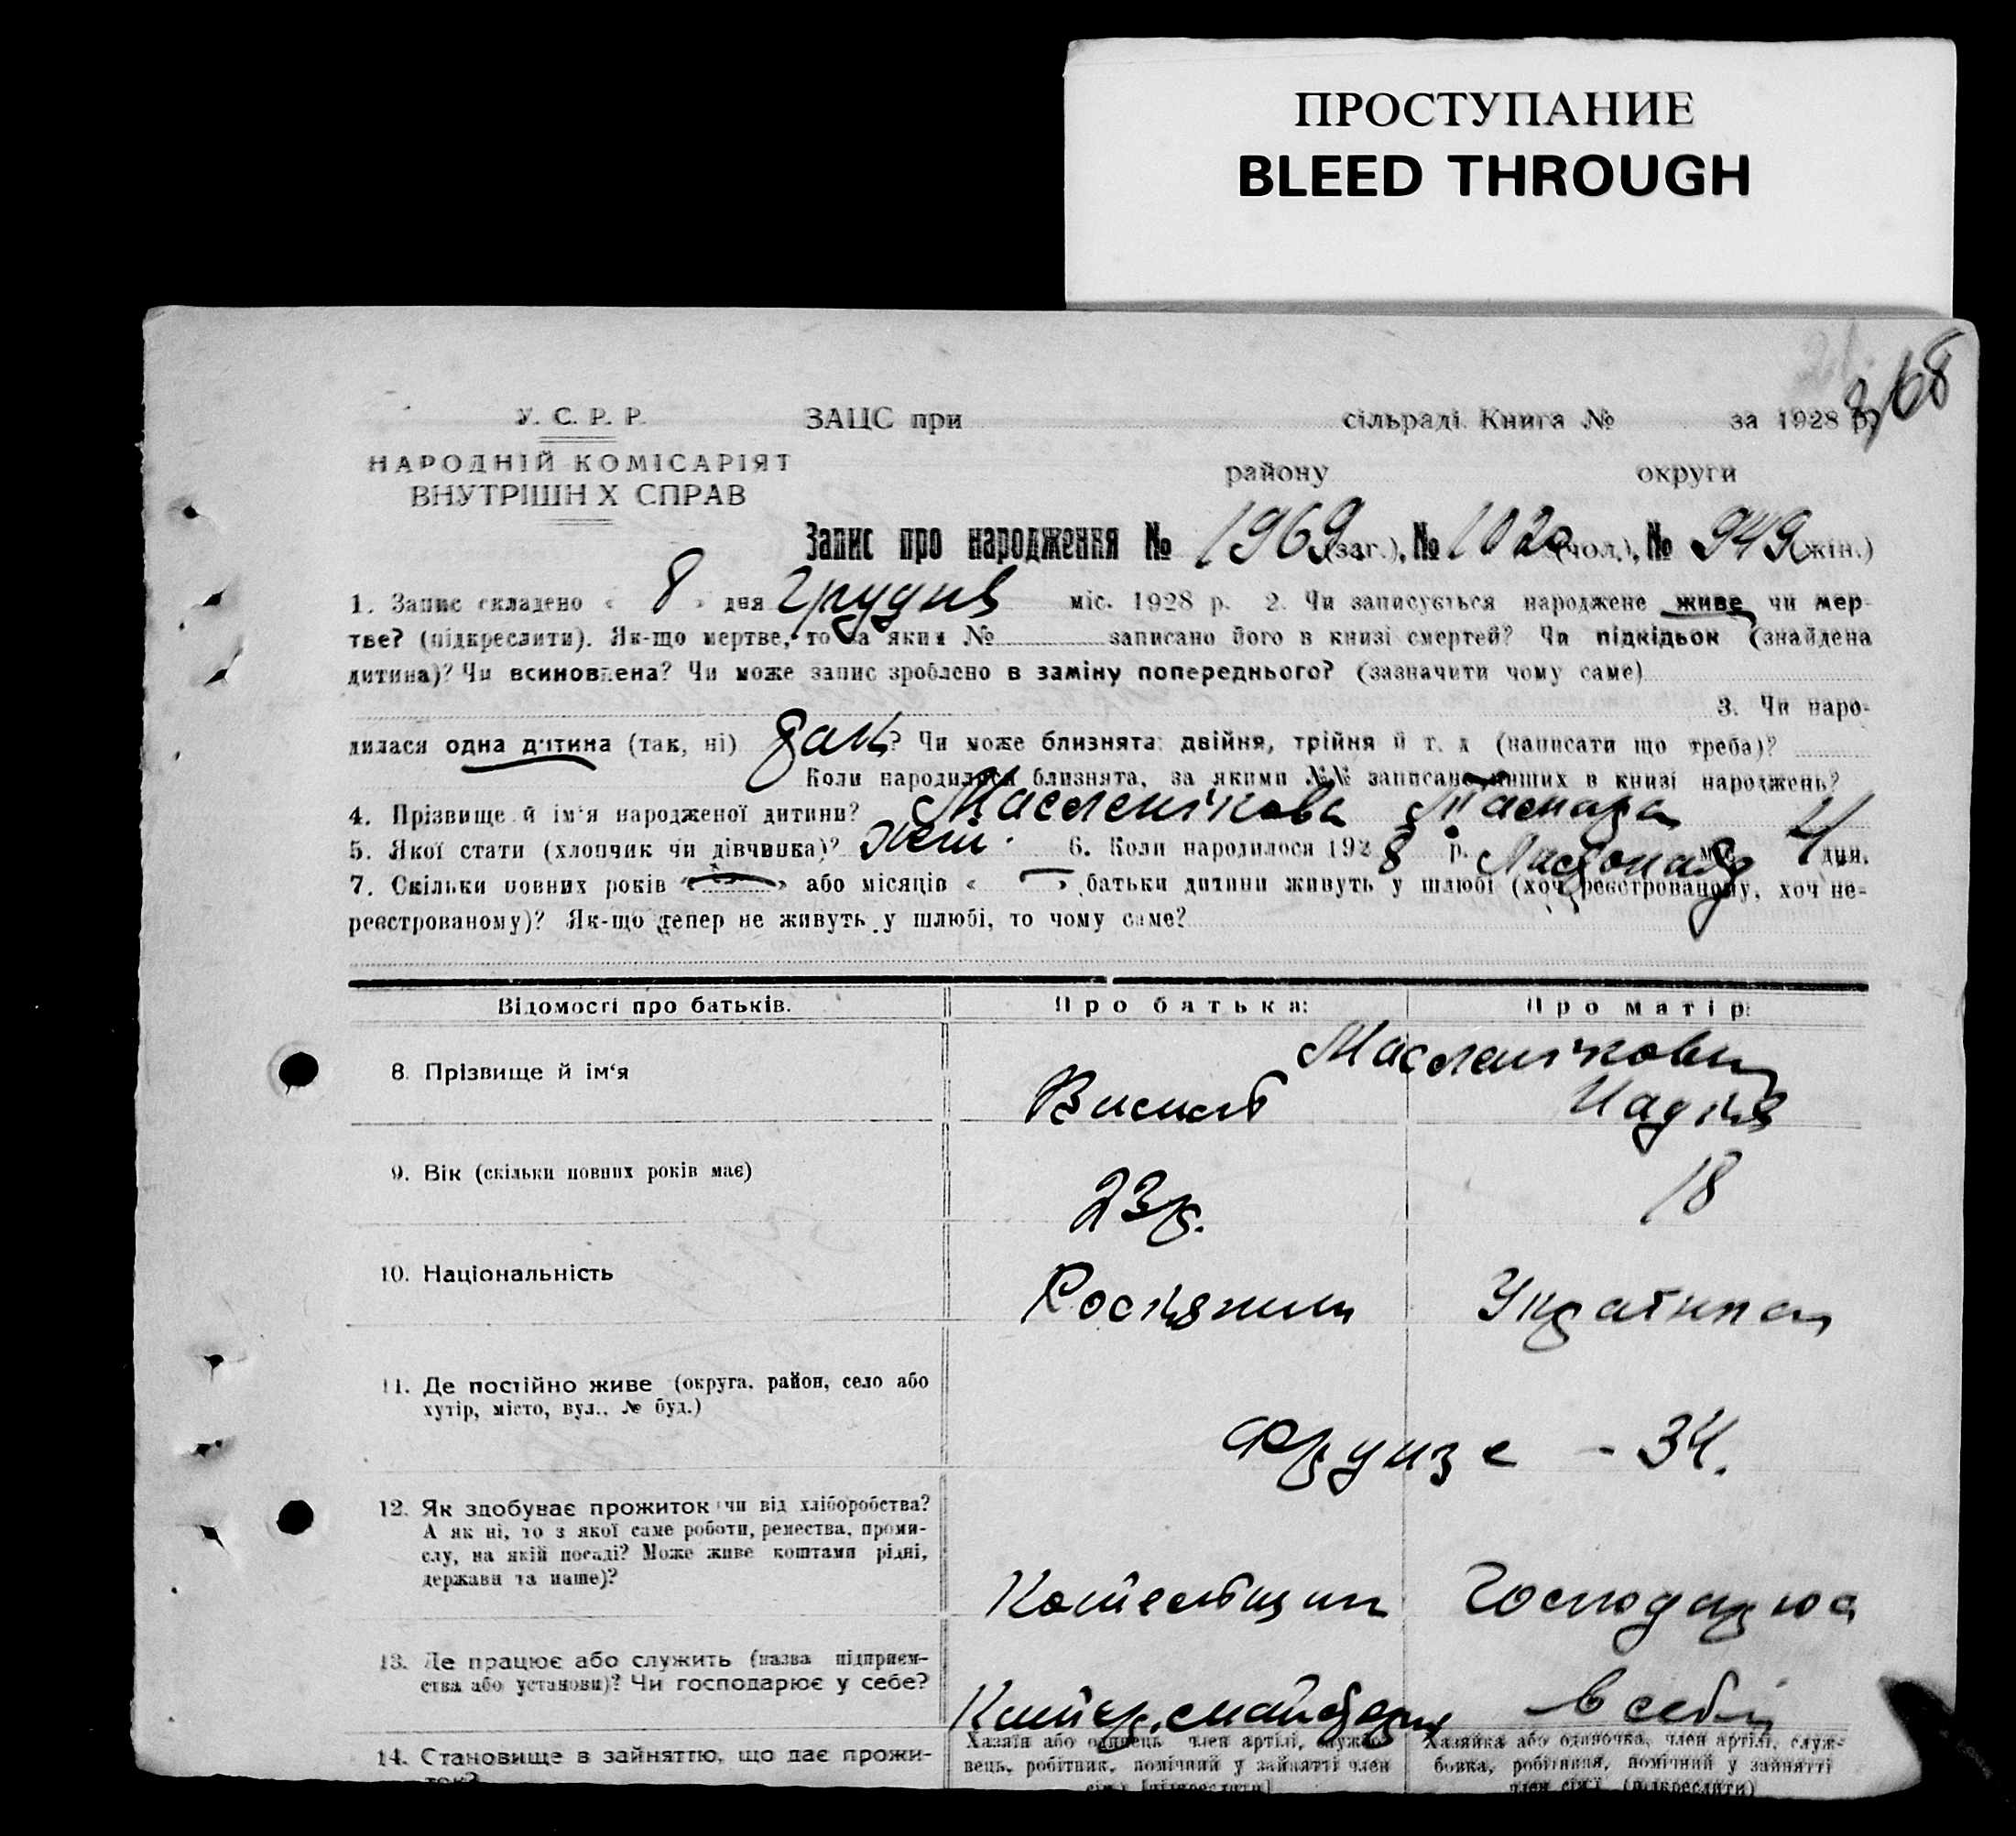 ПРОСТУПАНИЕ
BLEED THROUGH
368
У. С. Р. Р. ЗАЦС при сільраді Книга № за 1928 р.
НАРОДНІЙ КОМІСАРІЯТ району округи
ВНУТРІШН Х СПРАВ
Запис про народження № 1969 (заг.), № 1020 (чол.), № 949 (жін.)
1. Запис складено « 8 » дня Грудня міс. 1928 р. 2. Чи записується народжене живе чи мер-
тве? (підкреслити). Як-що мертве, то за яким № записано його в книзі смертей? Чи підкідьок (знайдена
дитина)? Чи всиновлена? Чи може запис зроблено в заміну попереднього? (зазначити чому саме)
3. Чи наро-
дилася одна дитина (так, ні) ? Чи може близнята: двійня, трійня й т. д (написати що треба)?
Коли народилося близнята, за якими №№ записано инших в книзі народжень?
4. Прізвище й ім'я народженої дитини? Масленікова Тамара
5. Якої стати (хлопчик чи дівчинка)? Жін. 6. Коли народилося 1928 р. Листопаду міс. 4 дня.
7. Скільки повних років « » або місяців « » батьки дитини живуть у шлюбі (хоч реєстрованому, хоч не-
реєстрованому)? Як-що тепер не живуть у шлюбі, то чому саме?
Відомості про батьків. Про батька: Про матір:
Масленікови
8. Прізвище й ім'я Надія
9. Вік (скільки повних років має) 23 р. 18
10. Національність Росіянин Українка
11. Де постійно живе (округа, район, село або
хутір, місто, вул., № буд.)
Фрунзе - 34.
12. Як здобуває прожиток чи від хліборобства?
А як ні, то з якої саме роботи, ремества, проми-
слу, на якій посаді? Може живе коштами рідні,
держави та инше)?
Господарює
13. Де працює або служить (назва підприєм-
ства або установи)? Чи господарює у себе?
в себе
14. Становище в зайняттю, що дає прожи-
ток?
Хазяїн або одинець член артілі, службо-
вець, робітник, помічний у зайнятті член
сім'ї (підкреслити)
Хазяйка або одиночка, член артілі, служ-
бовка, робітниця, помічний у зайнятті
член сім'ї (підкреслити)